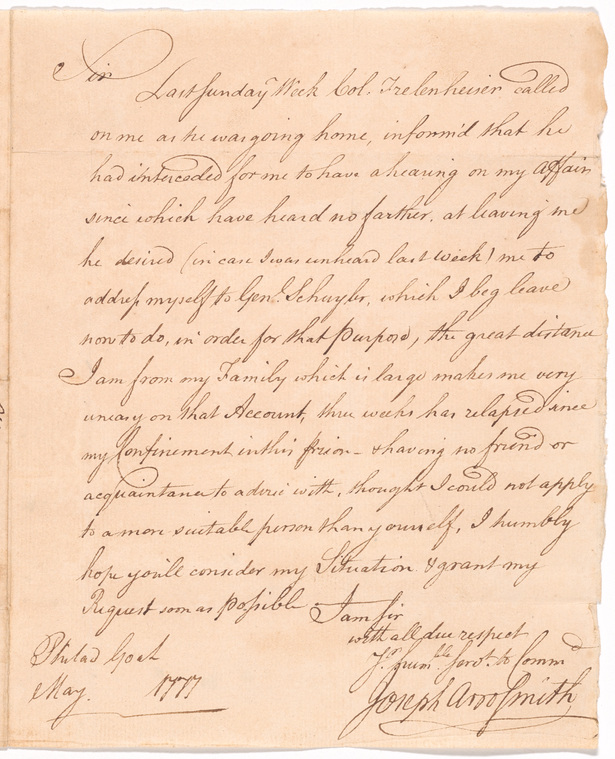 Sir
Last Sunday Week Col. Frelenheiser called
on me as he was going home, inform'd that he
had interceeded for me to have a hearing on my affair
since which have heard no farther. at leaving me
he desired (in case I was unheard last week) me to
address myself to Genl. Schuyler, which I beg leave
now to do, in order for that purpose, the great distance
I am from my Family which is large makes me very
uneasy on that Account, three weeks has relapsed since
my Confinement in this prison - & having no friend or
acquaintance to advise with, thought I could not apply
to a more suitable person than yourself, I humbly
hope you'll consider my Situation & grant my
Request soon as possible I am Sir
with all due respect
Yr. Hum.ble Servt. to Commd
Philad Goal
May. 1777
Joseph Arrosmith